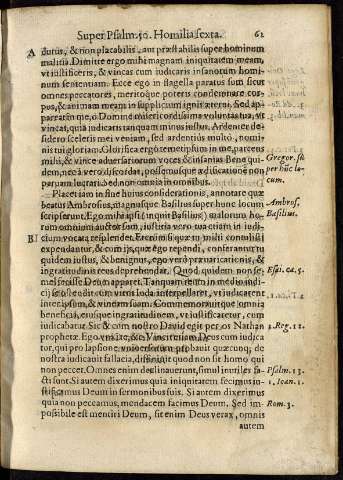 Super Psalm. 50. Homilia sexta. 61
A durus, & non placabilis, aut præstabilis super hominum
malitia. Dimitte ergo mihi magnam iniquitatem meam,
vt iustificeris, & vincas cum iudicaris insanorum homi
num sententiam. Ecce ego in flagella paratus sum sicut
omnes peccatores, meritoque poteris condemnare cor
pus, & animam meam in supplicium ignis æterni. Sed ap
pareat in
vincat, quia iudicaris tanquam minus iustus. Ardenter de
sidero sceleris mei veniam, sed ardentius multò, nomi
nis tui gloriam. Glorifica ergo temetipsum in me, parcens
mihi, & vince aduersariorum voces & insanias. Bene qui
dem, nec à vero discordat, possemusque
parua in omnibus.
Gregor. su
per hũc lo-
cum.
Placet iam in fine huius considerationis, annotare quæ
beatus Ambrosius, magnusque Basilius super hunc locum
scripserunt. Ego mihi ipsi (inquit Basilius) malorum ho-
rum omnium auctor sum, iustitia vero tua etiam in iudi-
Ambros,
Basilius.
B cium vocata resplendet. Etenim si quæ tu mihi contulisti
expendantur, & cum ijs, quæ ego rependi, conferantur, tu
quidem iustus, & benignus, ego verò præuaricationis, &
ingratitudinis reus deprehendar. Quod quidem
Deum apparet. Tanquam rem in medio iudi-
Esai. ca. 5.
Iuda interpellaret, vt iudicarent
inter ipsum, & vineam suam. Commemorauitque
beneficia, eiusque ingratitudinem, vt iustificaretur, cum
iudicabatur. Sic & cum nostro Dauid egit per os Nathan
2. Reg. 12.
prophetæ. Deus cum iudica
tur, qui pro lapsione probabit quæcunq; de
nostra iudicauit fallacia, quod non sit homo qui
non peccet. Omnes enim declinauerunt, simul inutiles fa-
Psalm. 13.
cti sunt. Si autem dixerimus quia iniquitatem fecimus in-
1. Ioan. 1.
iustificamus Deum in sermonibus suis. Si autem dixerimus
quia non peccauimus, mendacem facimus Deum. Sed im-
Rom. 3.
possibile est mentiri Deum, sit enim Deus verax, omnis
autem